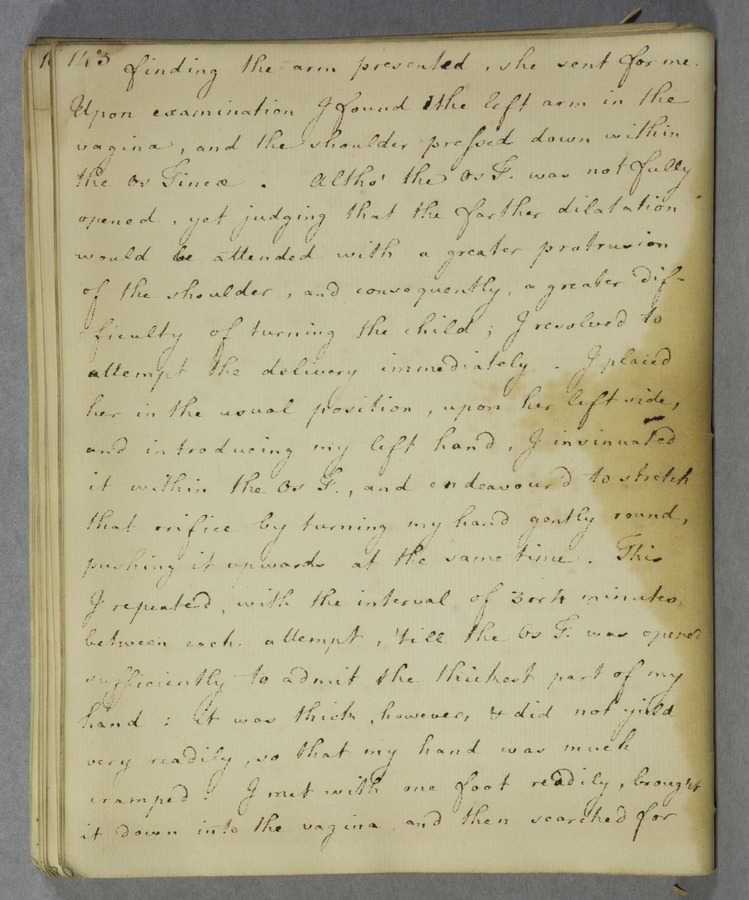 143 finding the arm presented, she sent for me.
Upon examination I found the left arm in the
vagina, and the shoulder pressed down within
the Os Tincæ. Altho' the Os T. was not fully
opened, yet judging that the farther dilatation
would be attended with a greater protrusion
of the shoulder, and consequently, a greater dif-
ficulty of turning the child; I resolved to
attempt the delivery immediately. I placed
her in the usual position, upon her left side,
and introducing my left hand, I insinuated
it within the Os T., and endeavour'd to stretch
that orifice by turning my hand gently round,
pushing it upwards at the same time. This
I repeated, with the interval of 3 or 4 minutes,
between each attempt, 'till the Os T. was opened
sufficiently to admit the thickest part of my
hand: it was thick, however, & did not yield
very readily, so that my hand was much
cramped. I met with one foot readily, brought
it down into the vagina, and then searched for